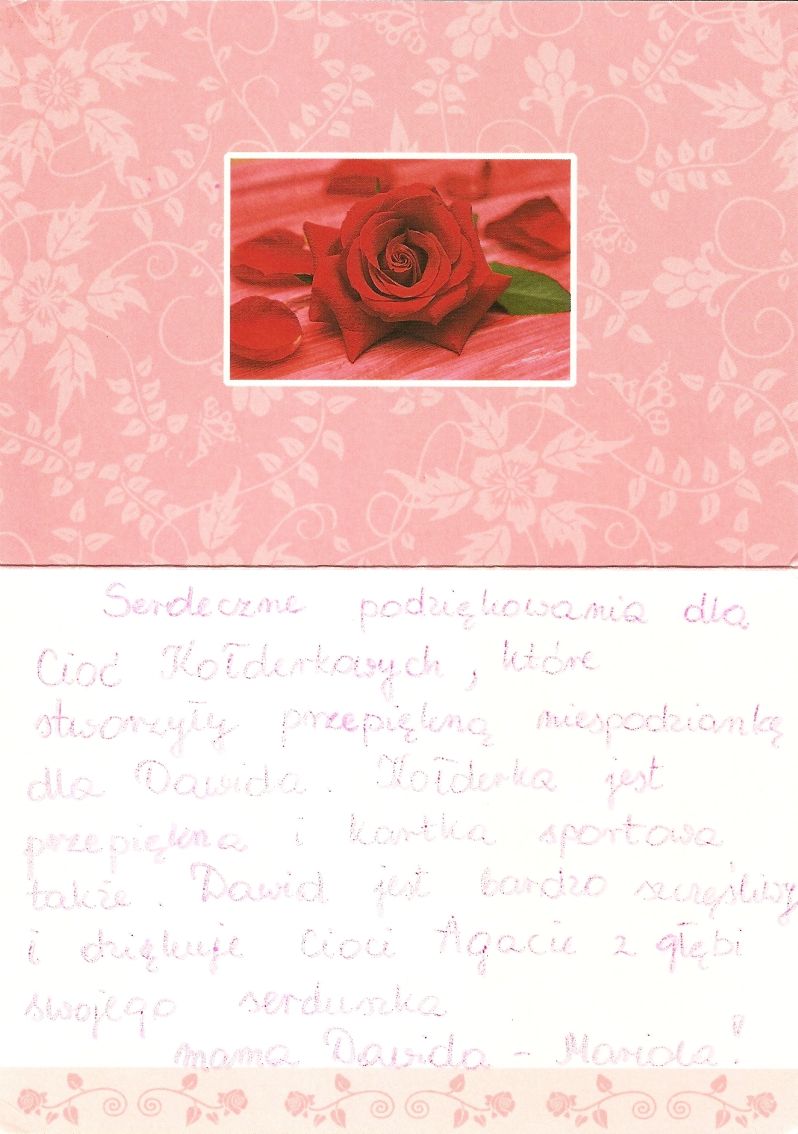 Serdeczne podziękowania dla
Cioć Kołderkowych, które
stworzyły przepiękną niespodziankę
dla Dawida. Kołderka jest
przepiękna i kartka sportowa
także. Dawid jest bardzo szczęśliwy
i dziękuje Cioci Agacie z głębi
swojego serduszka
mama Dawida - Mariola!